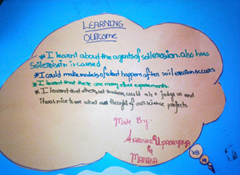 LEARNING
OUTCOME
* I learnt about the agents of soil erosion also how
soil erosion is caused
* I could make models of what happens after soil erosion occurs
* I learnt that there are many other experiments
* I learnt that others, not teachers, could also judge us and
it was nice to see what was thought of our science projects
Made By:-
Upadhyaya
&
MANASA